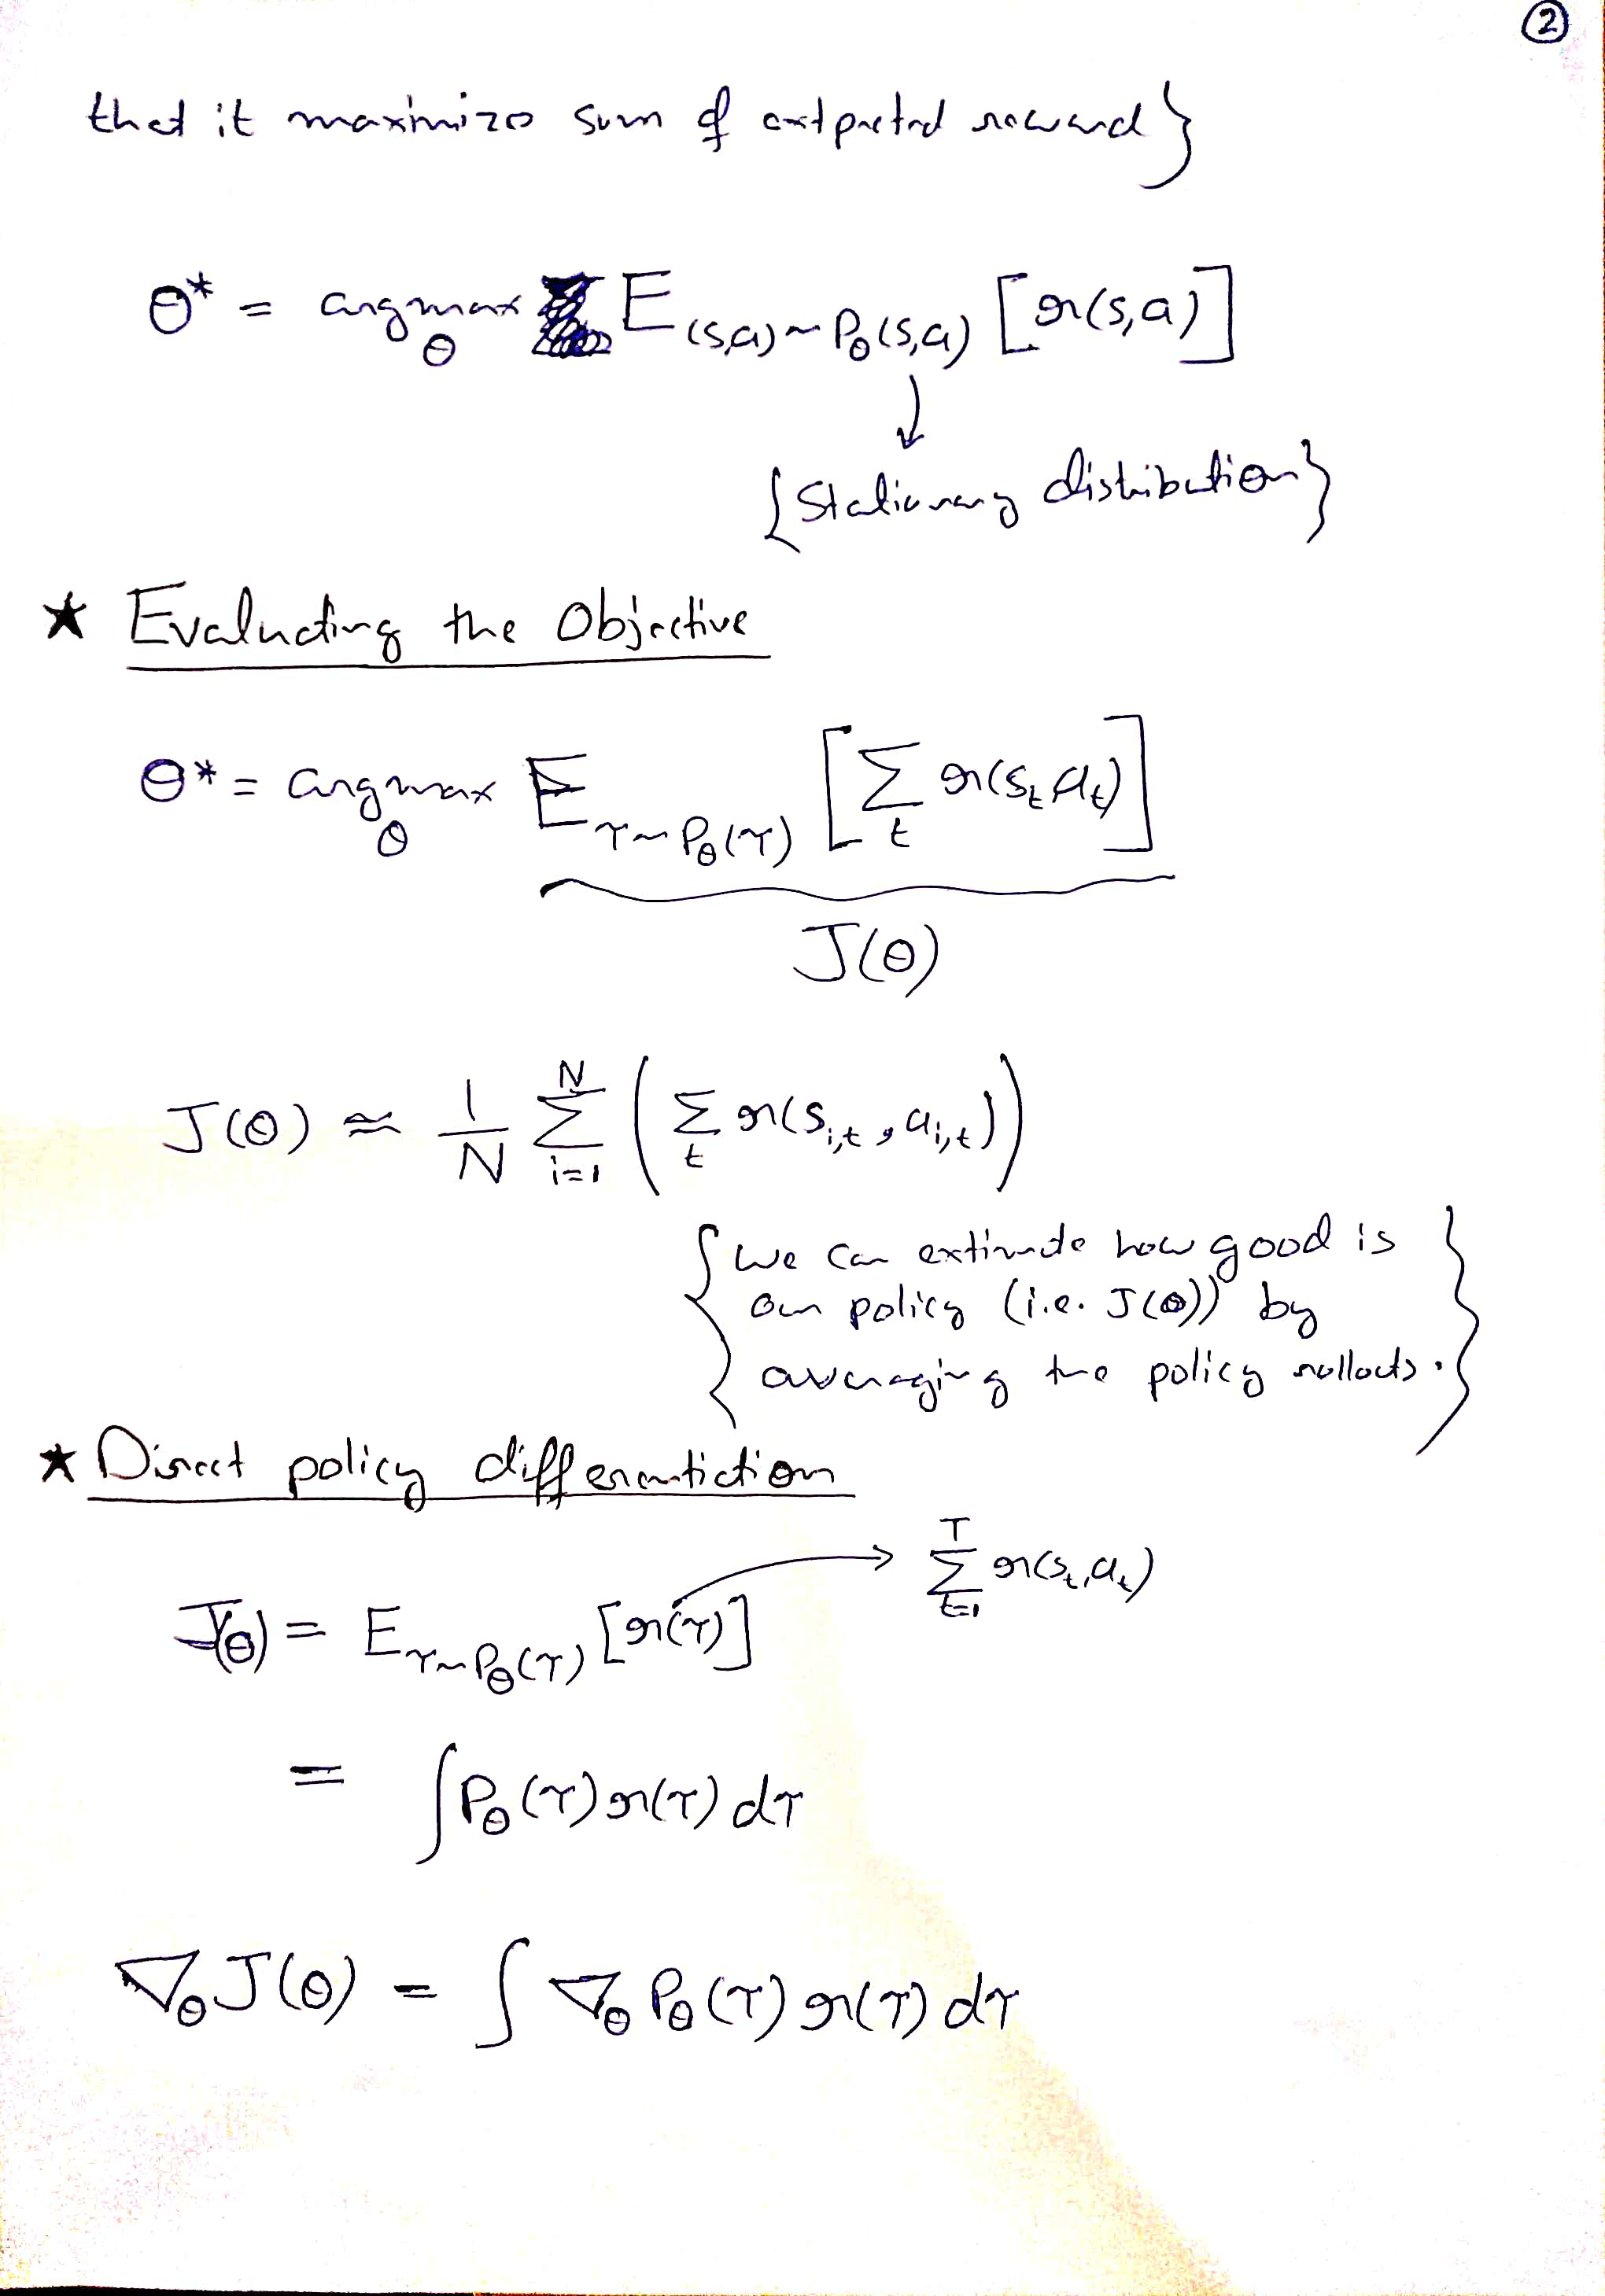 ②
that it maximize sum of extpected reward}
θ* = argmax_θ E_{(s,a)~P_θ(s,a)} [r(s,a)]
↓
{Stationary distribution}
★ Evaluating the Objective
θ* = argmax_θ E_{τ~P_θ(τ)} [Σ_t r(s_t, a_t)]
J(θ)
J(θ) ≈ 1/N Σ_{i=1}^{N} (Σ_t r(s_{i,t}, a_{i,t}))
{We can extimate how good is
our policy (i.e. J(θ)) by
averaging the policy rollouts.}
★ Direct policy differentiation
→ Σ_{t=1}^{T} r(s_t, a_t)
J(θ) = E_{τ~P_θ(τ)} [r(τ)]
= ∫ P_θ(τ) r(τ) dτ
∇_θ J(θ) = ∫ ∇_θ P_θ(τ) r(τ) dτ